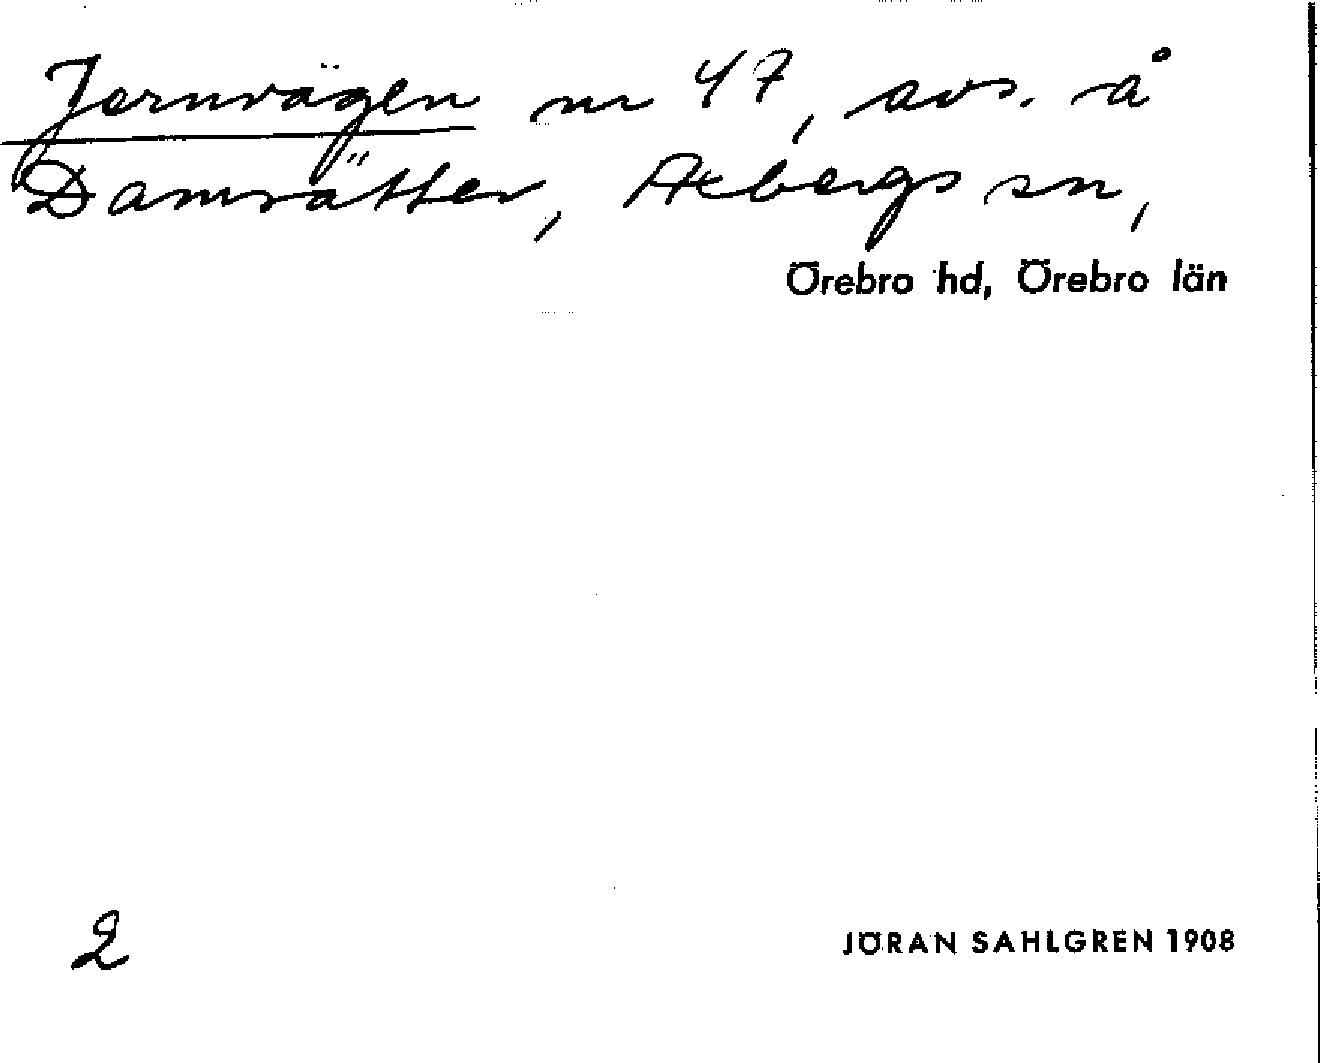 Jernvägen nr 47, avs. å
Damrätter, Axbergs sn,
Örebro hd, Örebro län
2
JÖRAN SAHLGREN 1908